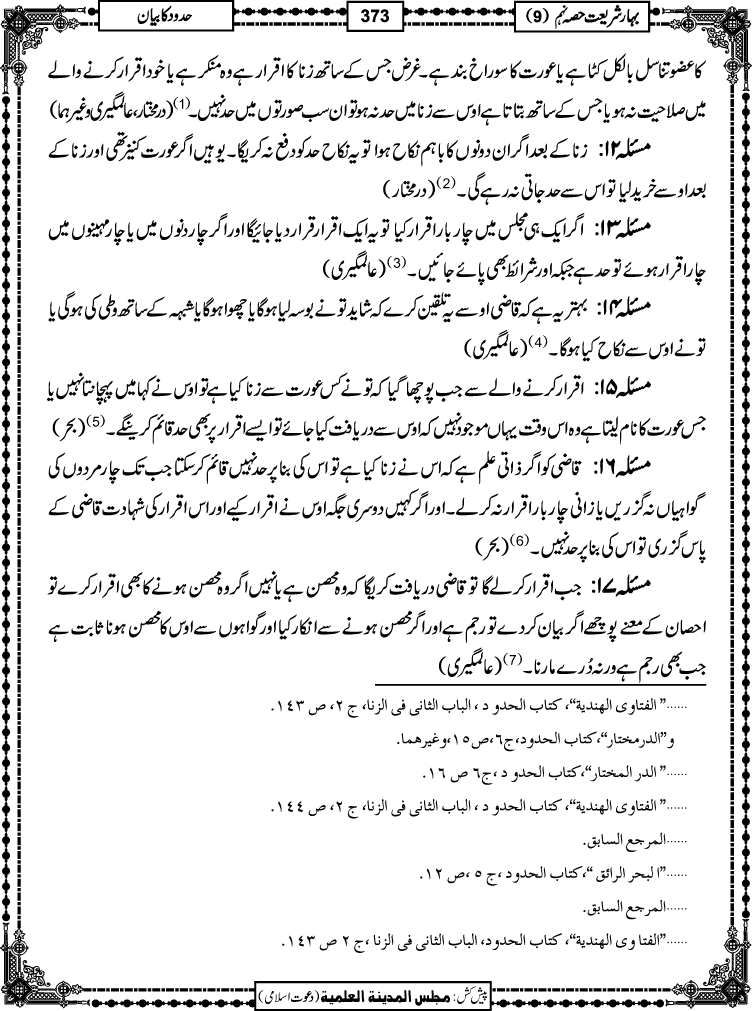 بہارِ شریعت حصہ نہم (9)
373
حدود کا بیان
کا عضو تناسل بالکل کٹا ہے یا عورت کا سوراخ بند ہے۔ غرض جس کے ساتھ زنا کا اقرار ہے وہ منکر ہے یا خود اقرار کرنے والے
میں صلاحیت نہ ہو یا جس کے ساتھ بتاتا ہے اوس سے زنا میں حد نہ ہو تو ان سب صورتوں میں حد نہیں۔(1) (درمختار، عالمگیری وغیرہما)
مسئلہ ۱۲: زنا کے بعد اگر ان دونوں کا باہم نکاح ہوا تو یہ نکاح حد کو دفع نہ کریگا۔ یوہیں اگر عورت کنیز تھی اور زنا کے
بعد اوسے خرید لیا تو اس سے حد جاتی نہ رہے گی۔(2) (درمختار)
مسئلہ ۱۳: اگر ایک ہی مجلس میں چار بار اقرار کیا تو یہ ایک اقرار قرار دیا جائیگا اور اگر چار دنوں میں یا چار مہینوں میں
چار اقرار ہوئے تو حد ہے جبکہ اور شرائط بھی پائے جائیں۔(3) (عالمگیری)
مسئلہ ۱۴: بہتر یہ ہے کہ قاضی اوسے یہ تلقین کرے کہ شاید تو نے بوسہ لیا ہوگا یا چھوا ہوگا یا شبہہ کے ساتھ وطی کی ہوگی یا
تو نے اوس سے نکاح کیا ہوگا۔(4) (عالمگیری)
مسئلہ ۱۵: اقرار کرنے والے سے جب پوچھا گیا کہ تو نے کس عورت سے زنا کیا ہے تو اوس نے کہا میں پہچانتا نہیں یا
جس عورت کا نام لیتا ہے وہ اس وقت یہاں موجود نہیں کہ اوس سے دریافت کیا جائے تو ایسے اقرار پر بھی حد قائم کرینگے۔(5) (بحر)
مسئلہ ۱۶: قاضی کو اگر ذاتی علم ہے کہ اس نے زنا کیا ہے تو اس کی بنا پر حد نہیں قائم کرسکتا جب تک چار مردوں کی
گواہیاں نہ گزریں یا زانی چار بار اقرار نہ کرلے۔ اور اگر کہیں دوسری جگہ اوس نے اقرار کیے اور اس اقرار کی شہادت قاضی کے
پاس گزری تو اس کی بنا پر حد نہیں۔(6) (بحر)
مسئلہ ۱۷: جب اقرار کرلے گا تو قاضی دریافت کریگا کہ وہ محصن ہے یا نہیں اگر وہ محصن ہونے کا بھی اقرار کرے تو
احصان کے معنے پوچھے اگر بیان کردے تو رجم ہے اور اگر محصن ہونے سے انکار کیا اور گواہوں سے اوس کا محصن ہونا ثابت ہے
جب بھی رجم ہے ورنہ دُرے مارنا۔(7) (عالمگیری)
......”الفتاوی الهندیة“، کتاب الحدود ، الباب الثانی فی الزنا، ج ۲، ص ۱۴۳.
و”الدرمختار“،کتاب الحدود،ج۶،ص۱۵،وغیرهما.
......”الدر المختار“،کتاب الحدود ،ج۶ ص ۱۶.
......”الفتاوی الهندیة“، کتاب الحدود ، الباب الثانی فی الزنا، ج ۲، ص ۱۴۴.
......المرجع السابق.
......”البحر الرائق “،کتاب الحدود ،ج ۵ ،ص ۱۲.
......المرجع السابق.
......”الفتاوی الهندیة“، کتاب الحدود، الباب الثانی فی الزنا ،ج ۲ ص ۱۴۳.
پیش کش: مجلس المدینة العلمیة (دعوت اسلامی)